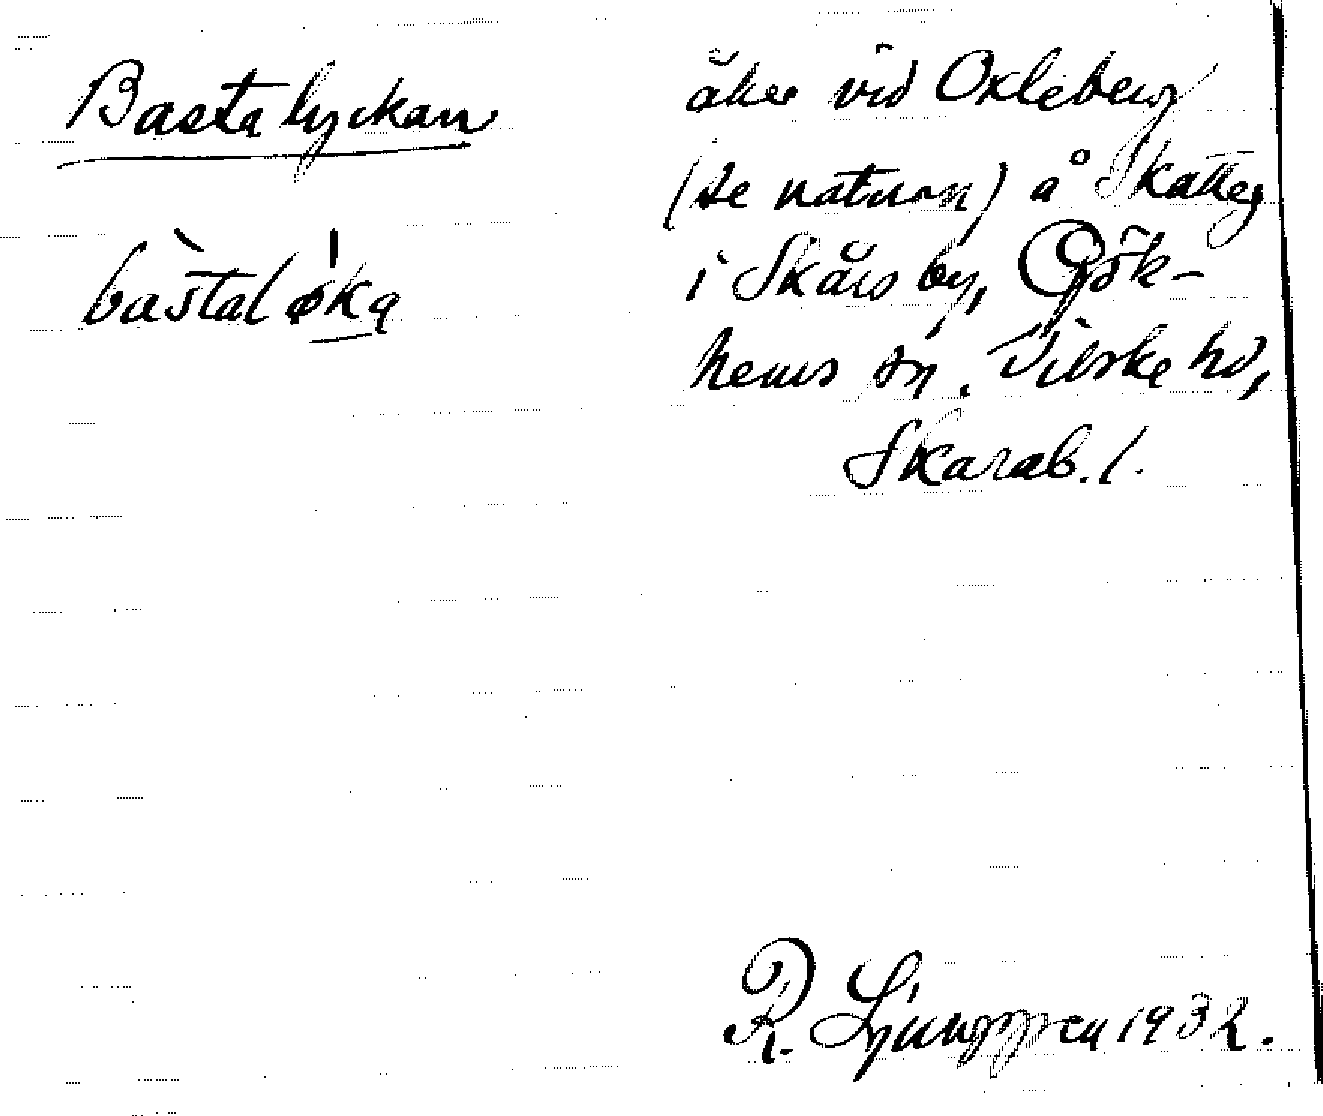 Bastalyckan
bàstaløka
åker vid Oxleberg
(se naturn) å Skatteg
i Skårs by, Gök-
hems sn. Vilske hd,
Skarab. l.
R. Ljunggren 1932.